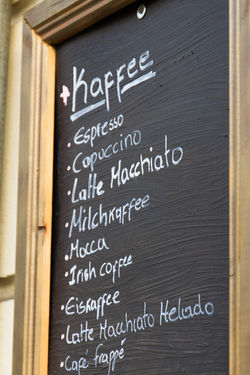 Kaffee
• Espresso
• Capuccino
• Latte Macchiato
• Milchkaffee
• Mocca
• Irish coffee
• Eiskaffee
• Latte Macchiato Helado
• Café frappé